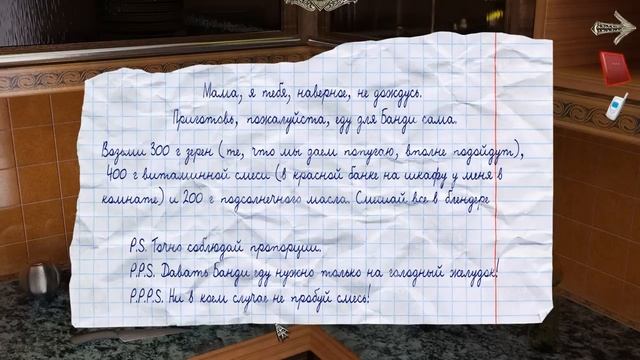 Мама, я тебя, наверное, не дождусь.
Приготовь, пожалуйста, еду для Банди сама.
Возьми 300 г зерен (те, что мы даем попугаю, вполне подойдут),
400 г витаминной смеси (в красной банке на шкафу у меня в
комнате) и 200 г подсолнечного масла. Смешай все в блендере
P.S. Точно соблюдай пропорции.
P.P.S. Давать Банди еду нужно только на голодный желудок!
P.P.P.S. Ни в коем случае не пробуй смесь!